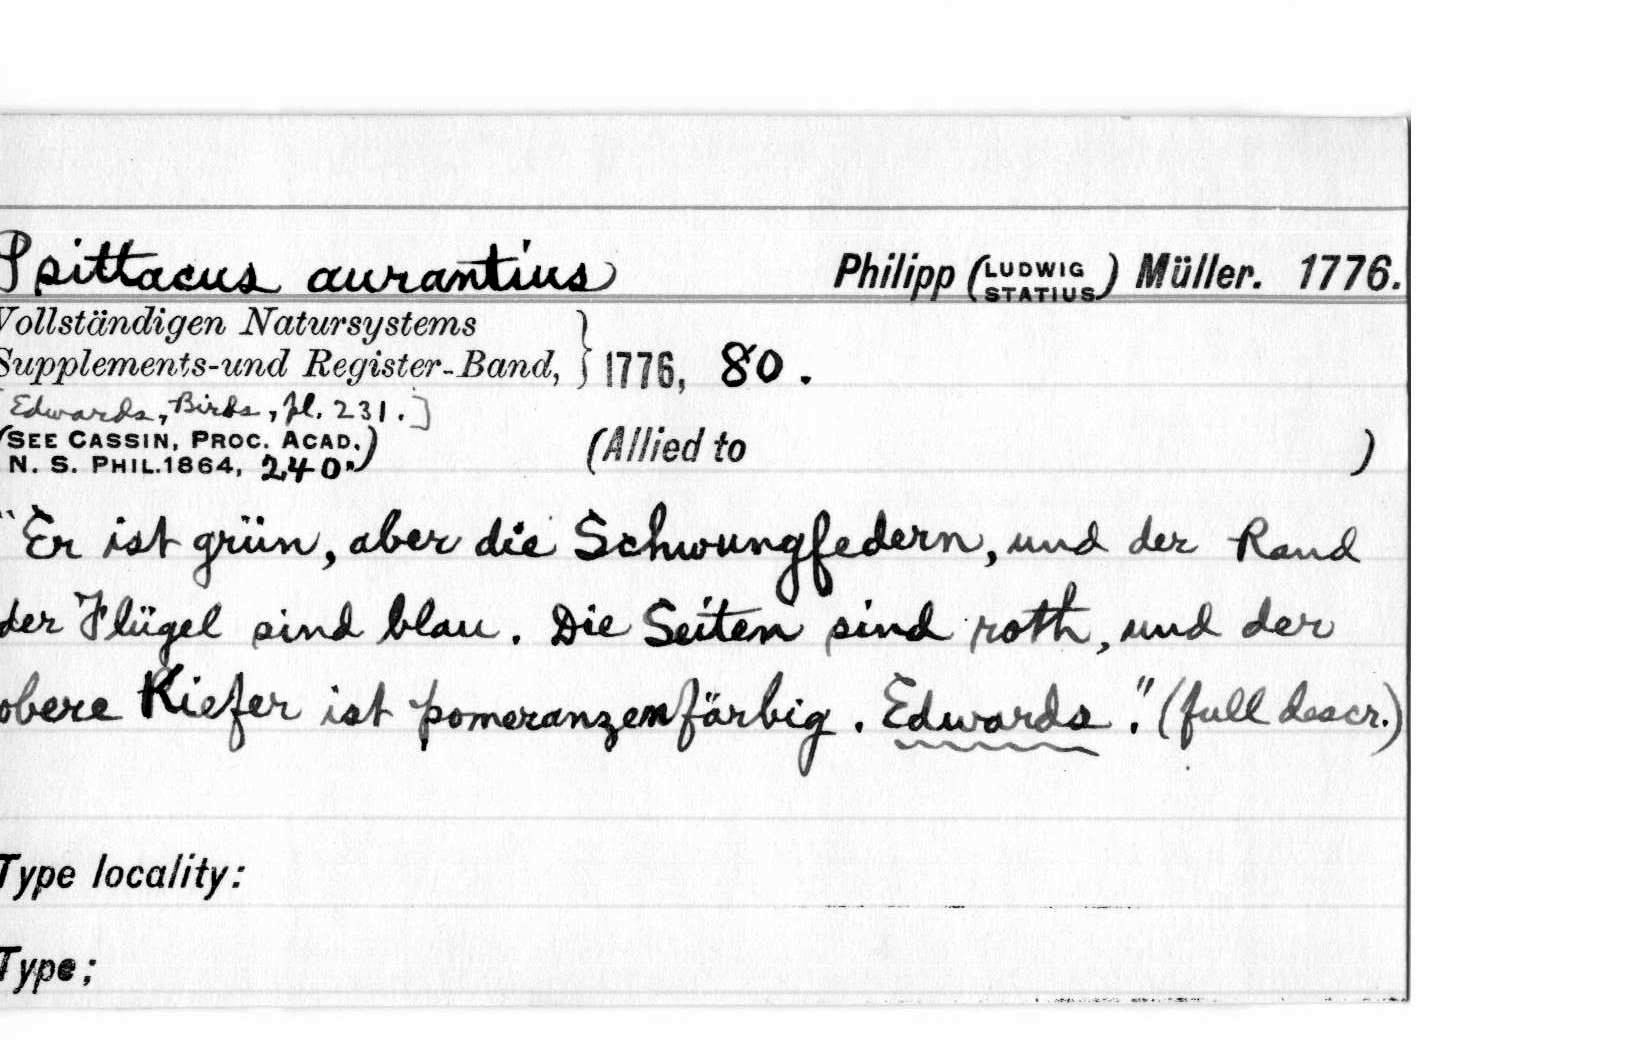 Psittacus aurantius Philipp (LUDWIG STATIUS) Müller. 1776.
Vollständigen Natursystems
Supplements-und Register-Band, } 1776, 80.
[Edwards, Birds, pl. 231.]
(SEE CASSIN, PROC. ACAD.
N. S. PHIL. 1864, 240.) (Allied to )
"Er ist grün, aber die Schwungfedern, und der Rand
der Flügel sind blau. Die Seiten sind roth, und der
obere Kiefer ist pomeranzenfärbig. Edwards." (full descr.)
Type locality:
Type;